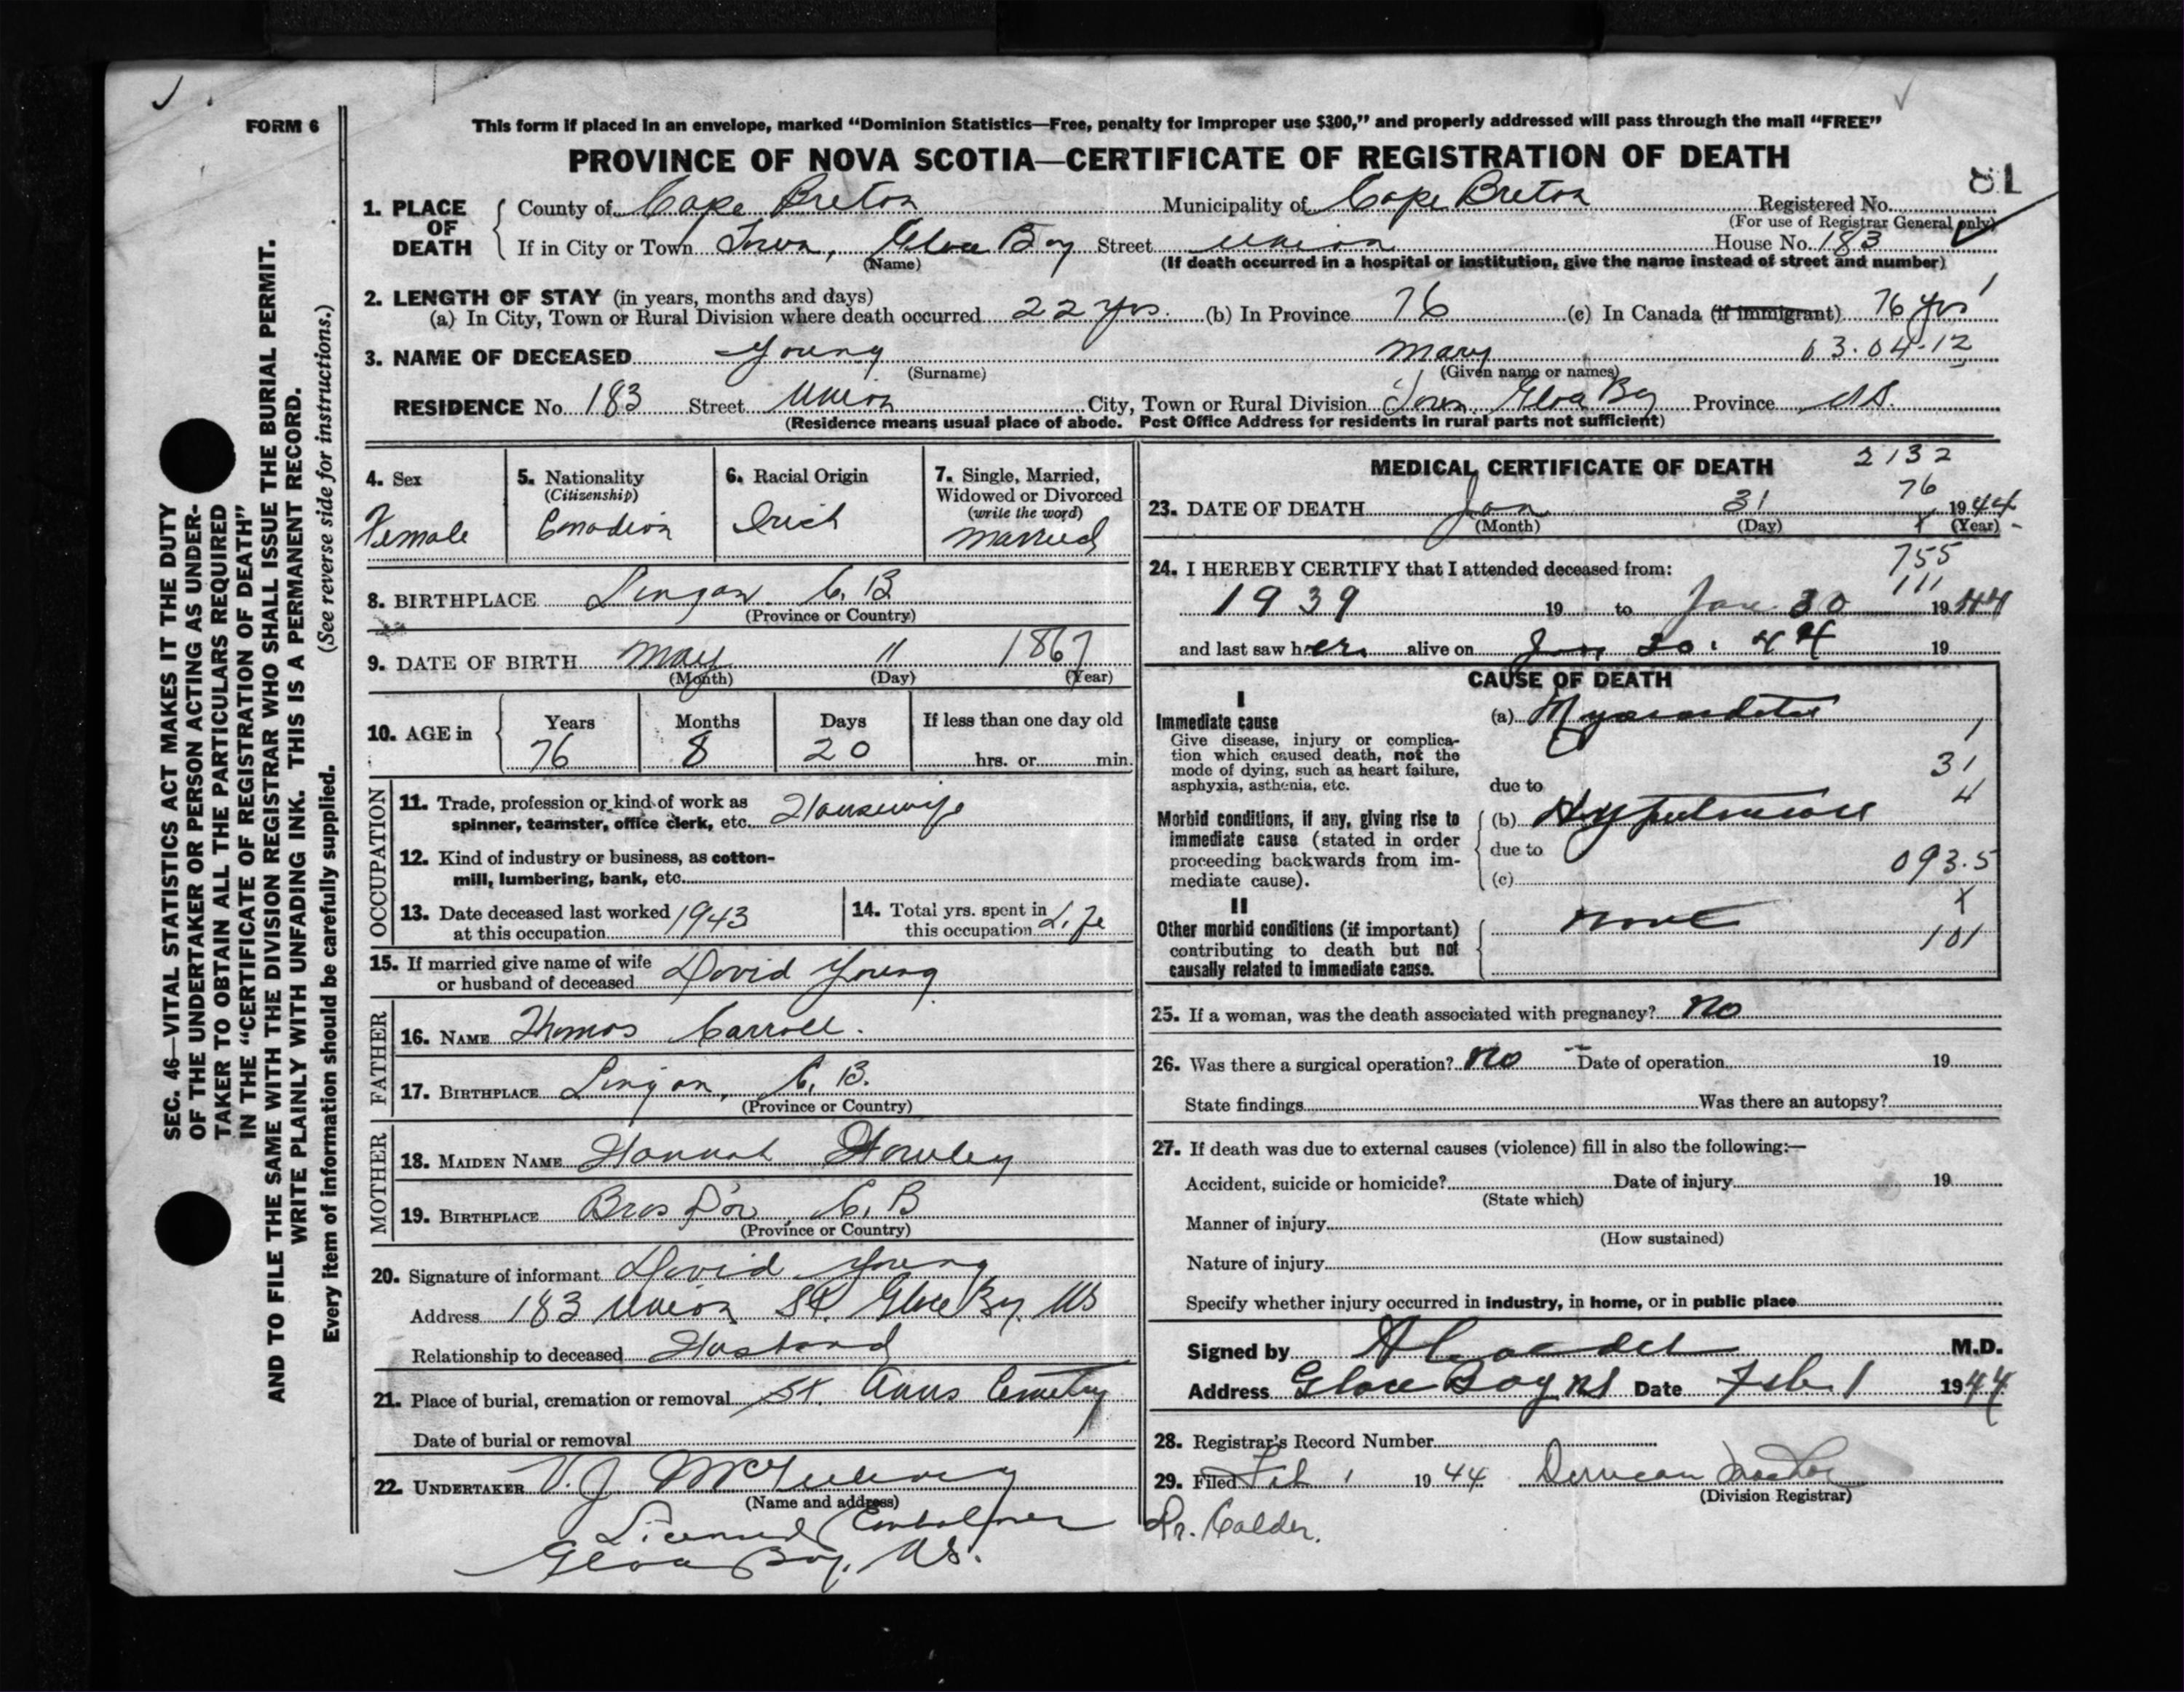 FORM 6
This form if placed in an envelope, marked "Dominion Statistics—Free, penalty for improper use $300," and properly addressed will pass through the mail "FREE"
PROVINCE OF NOVA SCOTIA—CERTIFICATE OF REGISTRATION OF DEATH
81
1. PLACE OF DEATH County of Cape Breton Municipality of Cape Breton Registered No.
(For use of Registrar General only)
If in City or Town Town, Glace Bay Street Union House No. 183
(Name) (If death occurred in a hospital or institution, give the name instead of street and number)
2. LENGTH OF STAY (in years, months and days)
(a) In City, Town or Rural Division where death occurred 22 yrs. (b) In Province 76 (c) In Canada (if immigrant) 76 yrs
3. NAME OF DECEASED Young Mary 03.04-12
(Surname) (Given name or names)
RESIDENCE No. 183 Street Union City, Town or Rural Division Town Glace Bay Province N.S.
(Residence means usual place of abode. Post Office Address for residents in rural parts not sufficient)
4. Sex Female
5. Nationality (Citizenship) Canadian
6. Racial Origin Irish
7. Single, Married, Widowed or Divorced (write the word) Married
8. BIRTHPLACE Lingan C. B.
(Province or Country)
9. DATE OF BIRTH May 11 1867
(Month) (Day) (Year)
10. AGE in Years 76 Months 8 Days 20 If less than one day old hrs. or min.
OCCUPATION
11. Trade, profession or kind of work as
spinner, teamster, office clerk, etc. Housewife
12. Kind of industry or business, as cotton-
mill, lumbering, bank, etc.
13. Date deceased last worked at this occupation 1943
14. Total yrs. spent in this occupation Life
15. If married give name of wife
or husband of deceased David Young
FATHER
16. NAME Thomas Carroll.
17. BIRTHPLACE Lingan, C. B.
(Province or Country)
MOTHER
18. MAIDEN NAME Hannah Howley
19. BIRTHPLACE Bras D'or, C. B
(Province or Country)
20. Signature of informant David Young
Address 183 Union St. Glace Bay NS
Relationship to deceased Husband
21. Place of burial, cremation or removal St. Anns Cemetry
Date of burial or removal
22. UNDERTAKER V. J.
(Name and address)
Licensed Embalmer
Glace Bay, N.S.
MEDICAL CERTIFICATE OF DEATH 2132
76
23. DATE OF DEATH Jan 31 1944
(Month) (Day) (Year)
755
24. I HEREBY CERTIFY that I attended deceased from:
111
1939 19 to Jan 30 1944
and last saw her alive on Jan 30. 44 19
CAUSE OF DEATH
I
Immediate cause
Give disease, injury or complica-
tion which caused death, not the
mode of dying, such as heart failure,
asphyxia, asthenia, etc.
(a) Myocarditis
1
31
4
due to
Morbid conditions, if any, giving rise to
immediate cause (stated in order
proceeding backwards from im-
mediate cause).
(b) Hypertension
due to
(c) 093.5
X
II
Other morbid conditions (if important)
contributing to death but not
causally related to immediate cause.
none
101
25. If a woman, was the death associated with pregnancy? no
26. Was there a surgical operation? no Date of operation 19
State findings Was there an autopsy?
27. If death was due to external causes (violence) fill in also the following:—
Accident, suicide or homicide? Date of injury 19
(State which)
Manner of injury
(How sustained)
Nature of injury
Specify whether injury occurred in industry, in home, or in public place
Signed by A Calder M.D.
Address Glace Bay NS Date Feb. 1 1944
28. Registrar's Record Number
29. Filed Feb 1 1944 Duncan
(Division Registrar)
Dr. Calder.
SEC. 46—VITAL STATISTICS ACT MAKES IT THE DUTY
OF THE UNDERTAKER OR PERSON ACTING AS UNDER-
TAKER TO OBTAIN ALL THE PARTICULARS REQUIRED
IN THE "CERTIFICATE OF REGISTRATION OF DEATH"
AND TO FILE THE SAME WITH THE DIVISION REGISTRAR WHO SHALL ISSUE THE BURIAL PERMIT.
WRITE PLAINLY WITH UNFADING INK. THIS IS A PERMANENT RECORD.
Every item of information should be carefully supplied. (See reverse side for instructions.)